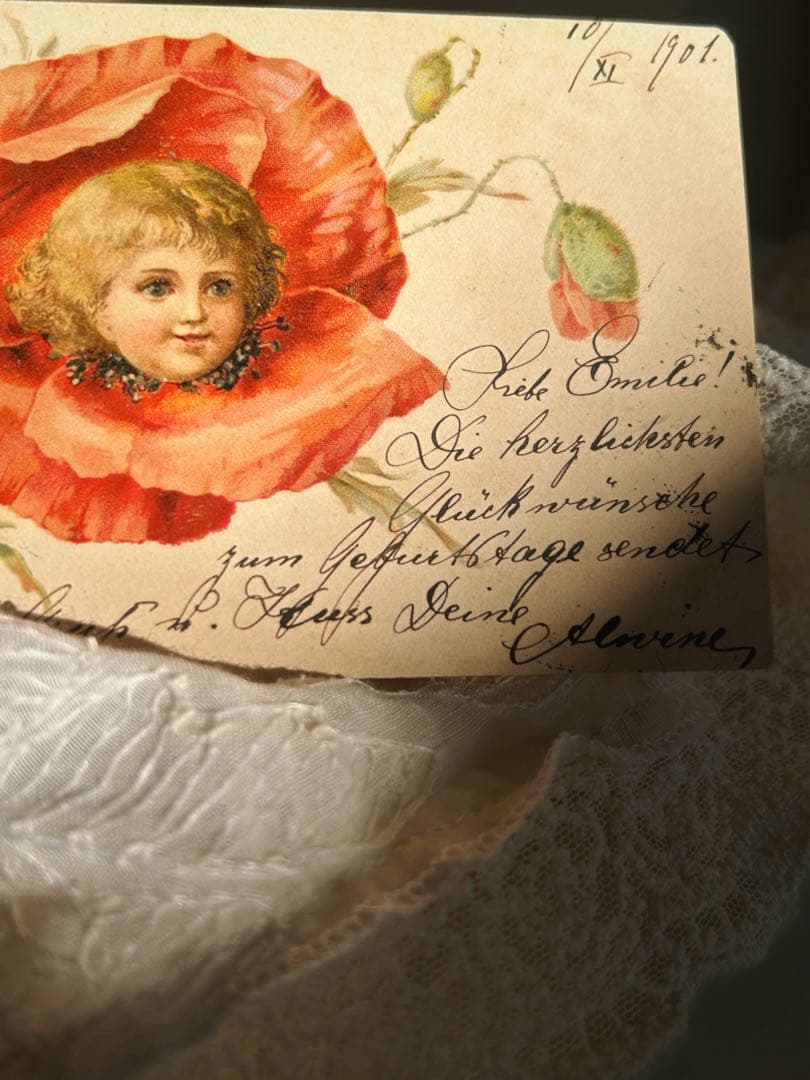 10/XI 1901.
Liebe Emilie!
Die herzlichsten
Glückwünsche
zum Geburtstage sendet
u. Kuss Deine
Alwine